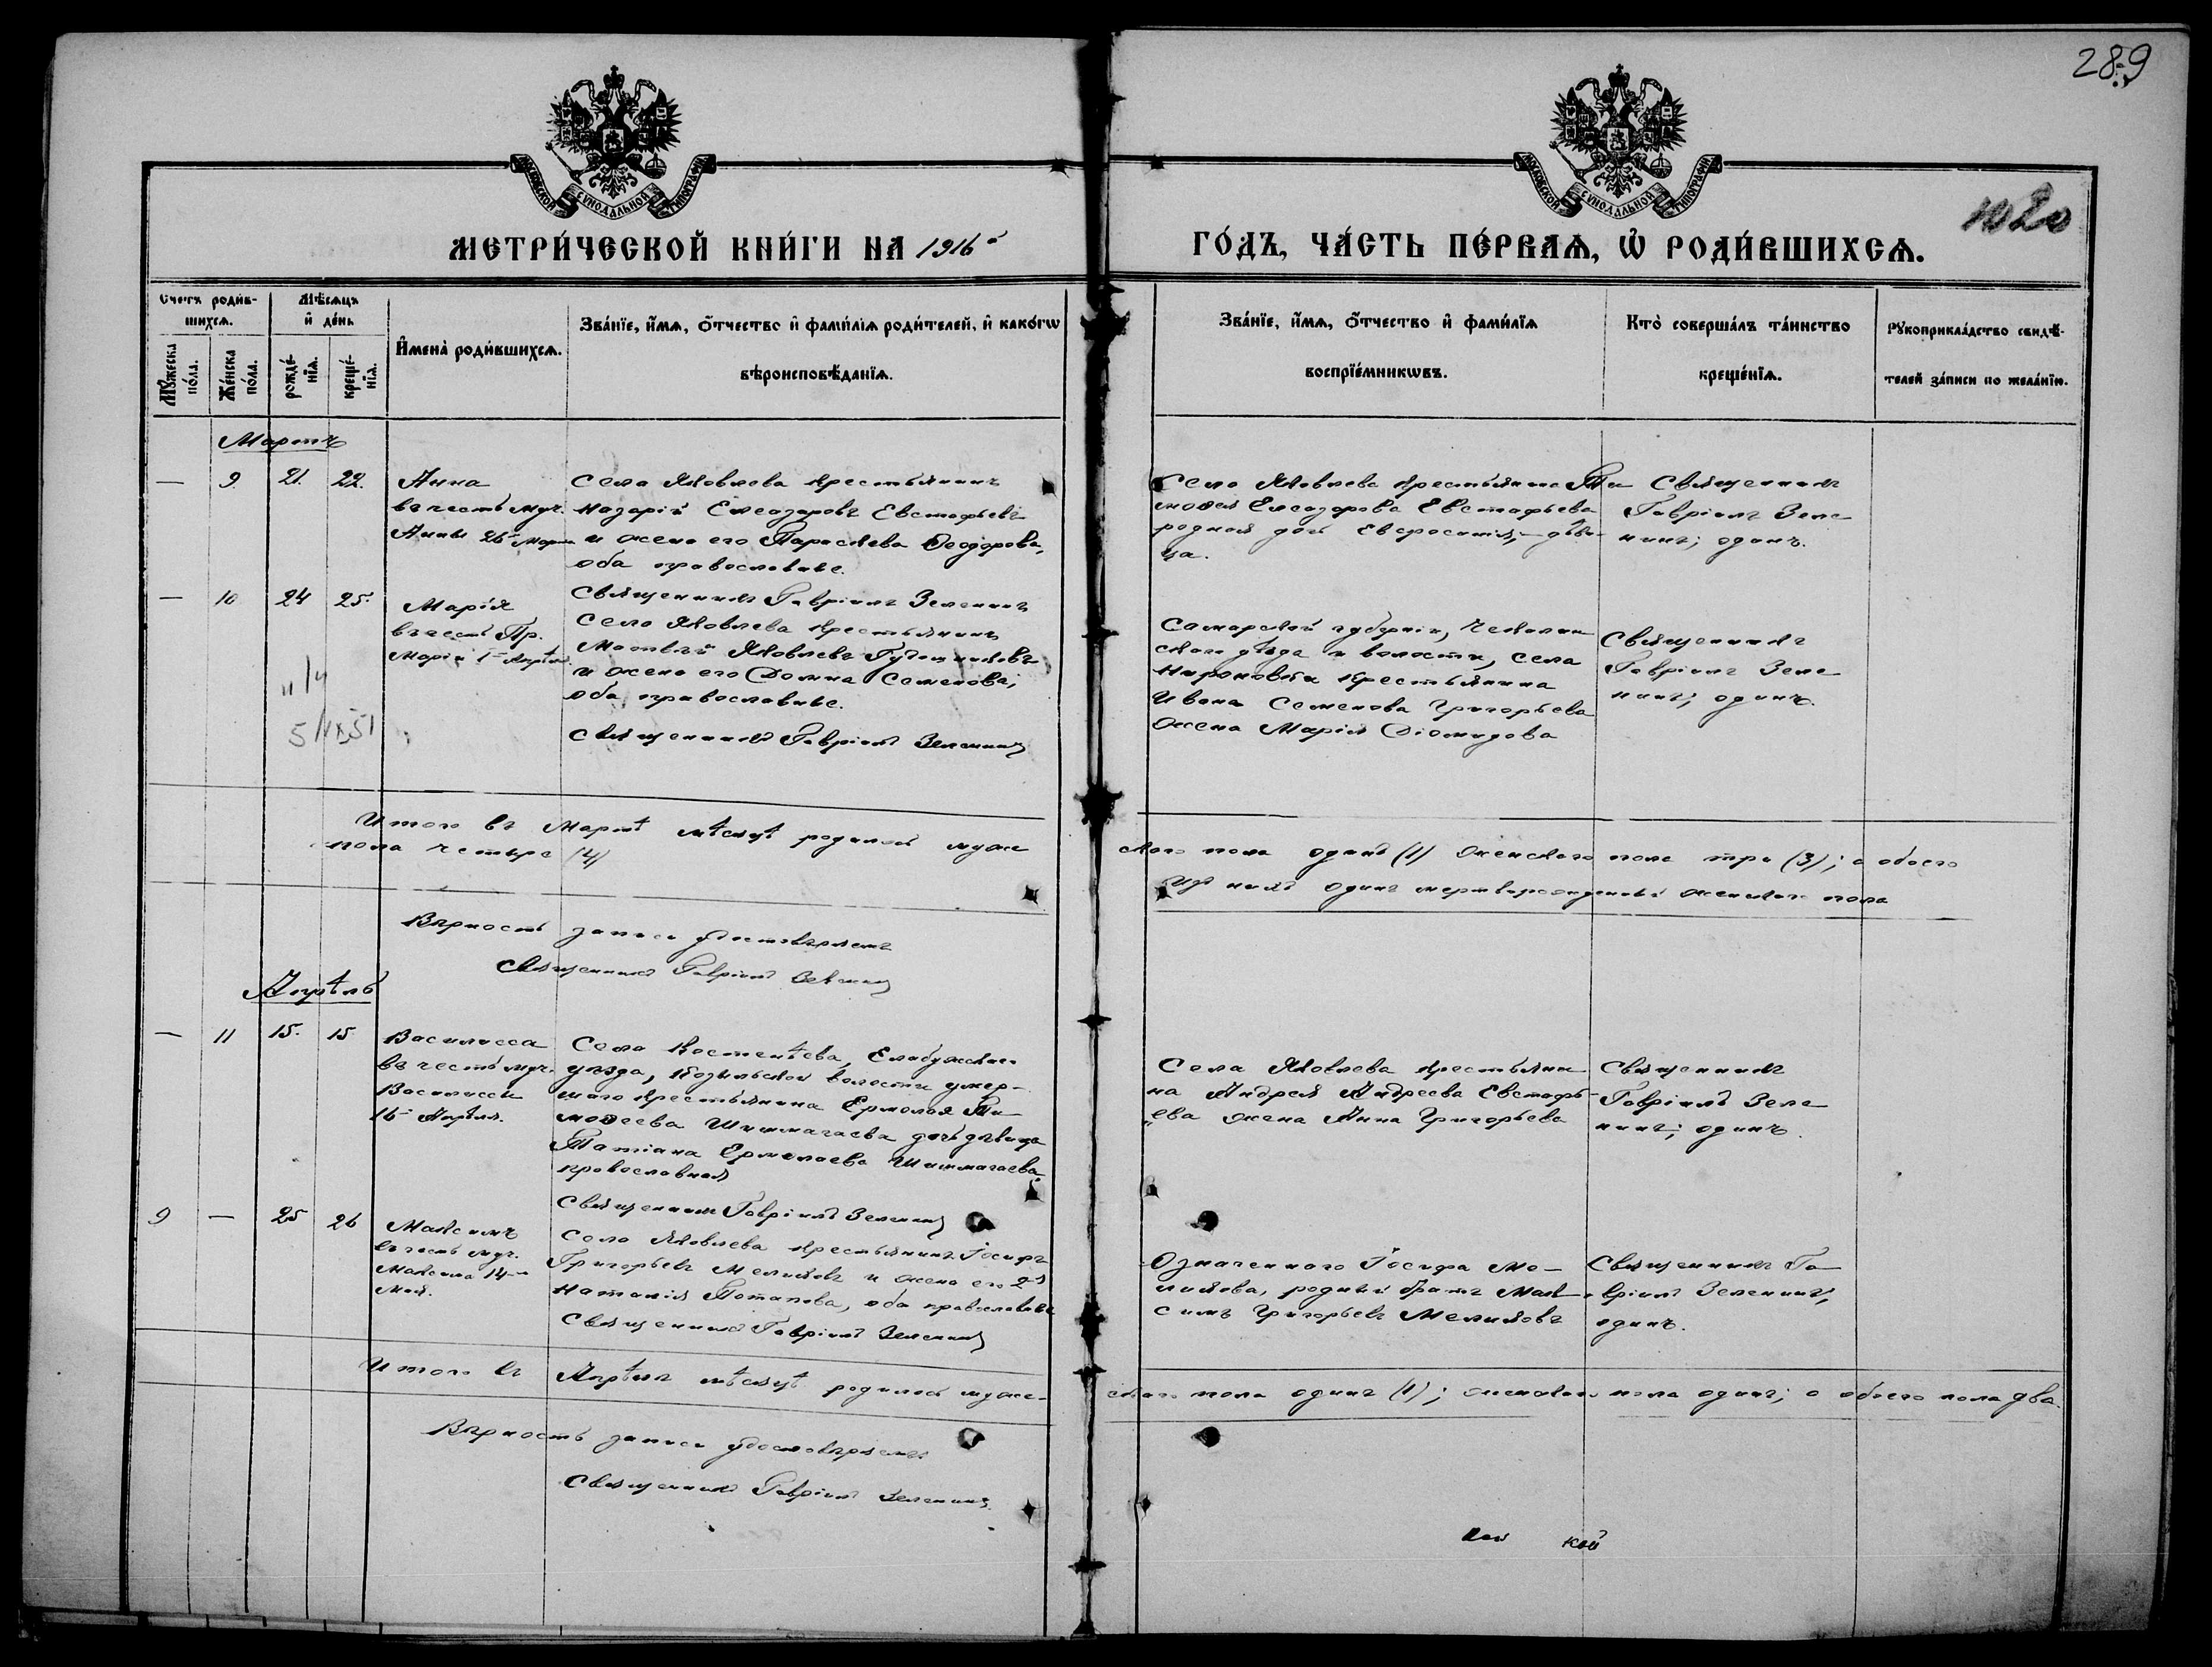 289
1020
МОСКОВСКОЙ СѴНОДАЛЬНОЙ ТИПОГРАФІИ
МОСКОВСКОЙ СѴНОДАЛЬНОЙ ТИПОГРАФІИ
МЕТРИ́ЧЕСКОЙ КНИ́ГИ НА 1916й
ГО́ДЪ, ЧА́СТЬ ПЕ́РВАѦ, Ѡ҆ РОДИ́ВШИХСѦ.
Счетъ роди́в-
шихсѧ.
Мѣ́сѧцъ
и҆ де́нь
Мꙋ́жеска
по́ла.
Же́нска
по́ла.
рожде́-
нїѧ.
креще́-
нїѧ.
И҆мена̀ роди́вшихсѧ.
Зва́нїе, и҆́мѧ, ѻ҆́тчество и҆ фами́лїѧ роди́телей, и҆ како́гѡ
вѣроисповѣ́данїѧ.
Зва́нїе, и҆́мѧ, ѻ҆́тчество и҆ фами́лїѧ
воспрїе́мникѡвъ.
Кто̀ соверша́лъ та́инство
креще́нїѧ.
Рꙋкоприкла́дство свидѣ́-
телей за́писи по жела́нїю.
Мартъ
— 9. 21. 22.
Анна
въ честь муч.
Анны 26го Марта
Села Яковлева крестьянинъ
Назарій Елеазаровъ Евстафьевъ
и жена его Параскева Ѳеодорова,
оба православные.
Священникъ Гавріилъ Зеленинъ
Села Яковлева крестьянина Ти
моѳея Елеазарова Евстафьева
родная дочь Евфросинія, — дѣви-
ца.
Священникъ
Гавріилъ Зеле
нинъ; одинъ.
— 10 24 25.
Марія
въ честь Пр.
Маріи 1го Апрѣля.
Села Яковлева крестьянинъ
Матвѣй Яковлевъ
и жена его Домна Семенова,
оба православные.
Священникъ Гавріилъ Зеленинъ
Самарской губерніи,
уѣзда и волости, села
крестьянина
Ивана Семенова Григорьева
жена Марія Діомидова
Священникъ
Гавріилъ Зеле
нинъ; одинъ.
5/IX 51
Итого въ Мартѣ мѣсяцѣ родилось муже
скаго пола одинъ (1) женскаго пола три (3); а обоего
пола четыре (4)
Изъ нихъ одинъ мертворожденный женскаго пола
Вѣрность записи удостовѣряемъ
Священникъ Гавріилъ Зеленинъ
Апрѣль
— 11 15. 15
Василисса
въ честь муч.
Василиссы
16го Апрѣля.
Села Костенѣева, Елабужскаго
уѣзда, Козыльской волости умер-
шаго крестьянина Ермолая Ти
моѳеева Шишмагаева дочь дѣвица
Татіана Ермолаева Шишмагаева
православная
Священникъ Гавріилъ Зеленинъ
Села Яковлева крестьяни
на Андрея Андреева Евстафь-
ева жена Анна Григорьева
Священникъ
Гавріилъ Зеле
нинъ; одинъ.
9 — 25 26
Максимъ
въ честь муч.
Максима 14го
Мая.
Села Яковлева крестьянинъ Іосифъ
Григорьевъ Меликовъ и жена его 2я
Наталія Потапова, оба православные
Священникъ Гавріилъ Зеленинъ
Означеннаго Іосифа Ме-
ликова, родный братъ Мак
симъ Григорьевъ Меликовъ
Священникъ Га
вріилъ Зеленинъ;
одинъ.
Итого въ Апрѣлѣ мѣсяцѣ родилось муже-
скаго пола одинъ (1); женскаго пола одинъ; а обоего пола два.
Вѣрность записи удостовѣряемъ
Священникъ Гавріилъ Зеленинъ
кой